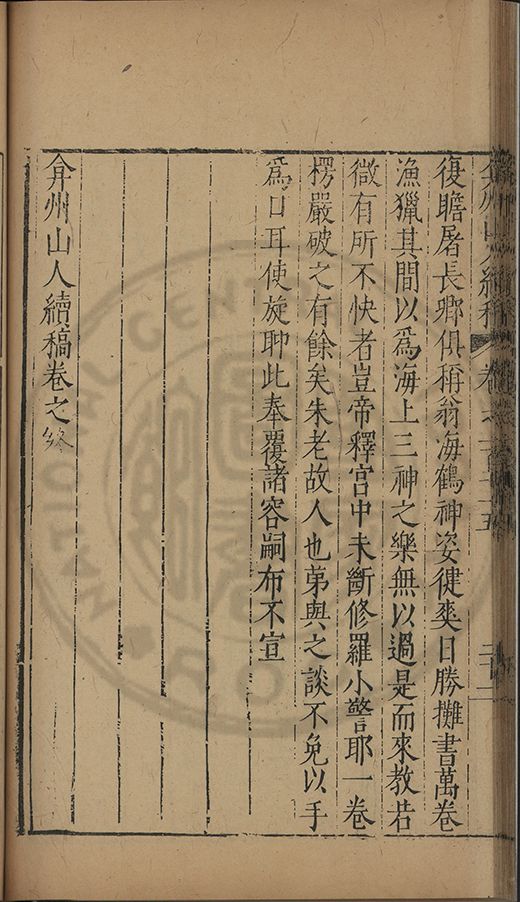 弇州山人續稿 卷之一百 十五
復瞻屠長卿俱稱翁海鶴神姿健爽日勝攤書萬卷
漁獵其間以爲海上三神之樂無以過是而來教若
微有所不快者豈帝釋宮中未斷修羅小警耶一卷
楞嚴破之有餘矣朱老故人也苐與之談不免以手
爲口耳使旋聊此奉覆諸容嗣布不宣
弇州山人續稿卷之終